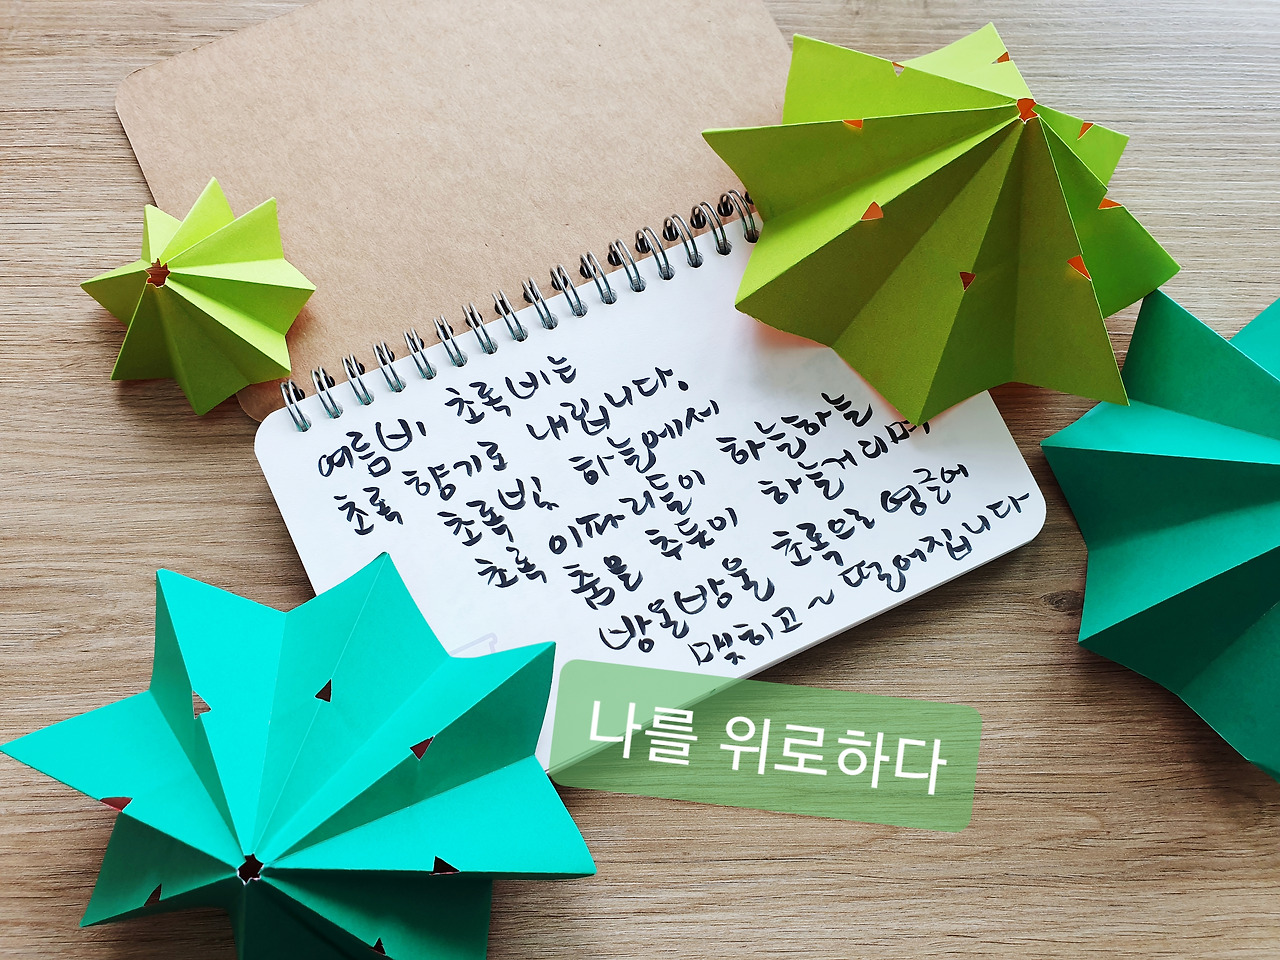 여름비 초록 비는
초록 향기로 내립니다.
초록빛 하늘에세
초록 이파리들이 하늘하늘
춤을 추듯이 하늘거리며
방울방울 초록으로 영글에
맺히고~ 떨어집니다
나를 위로하다